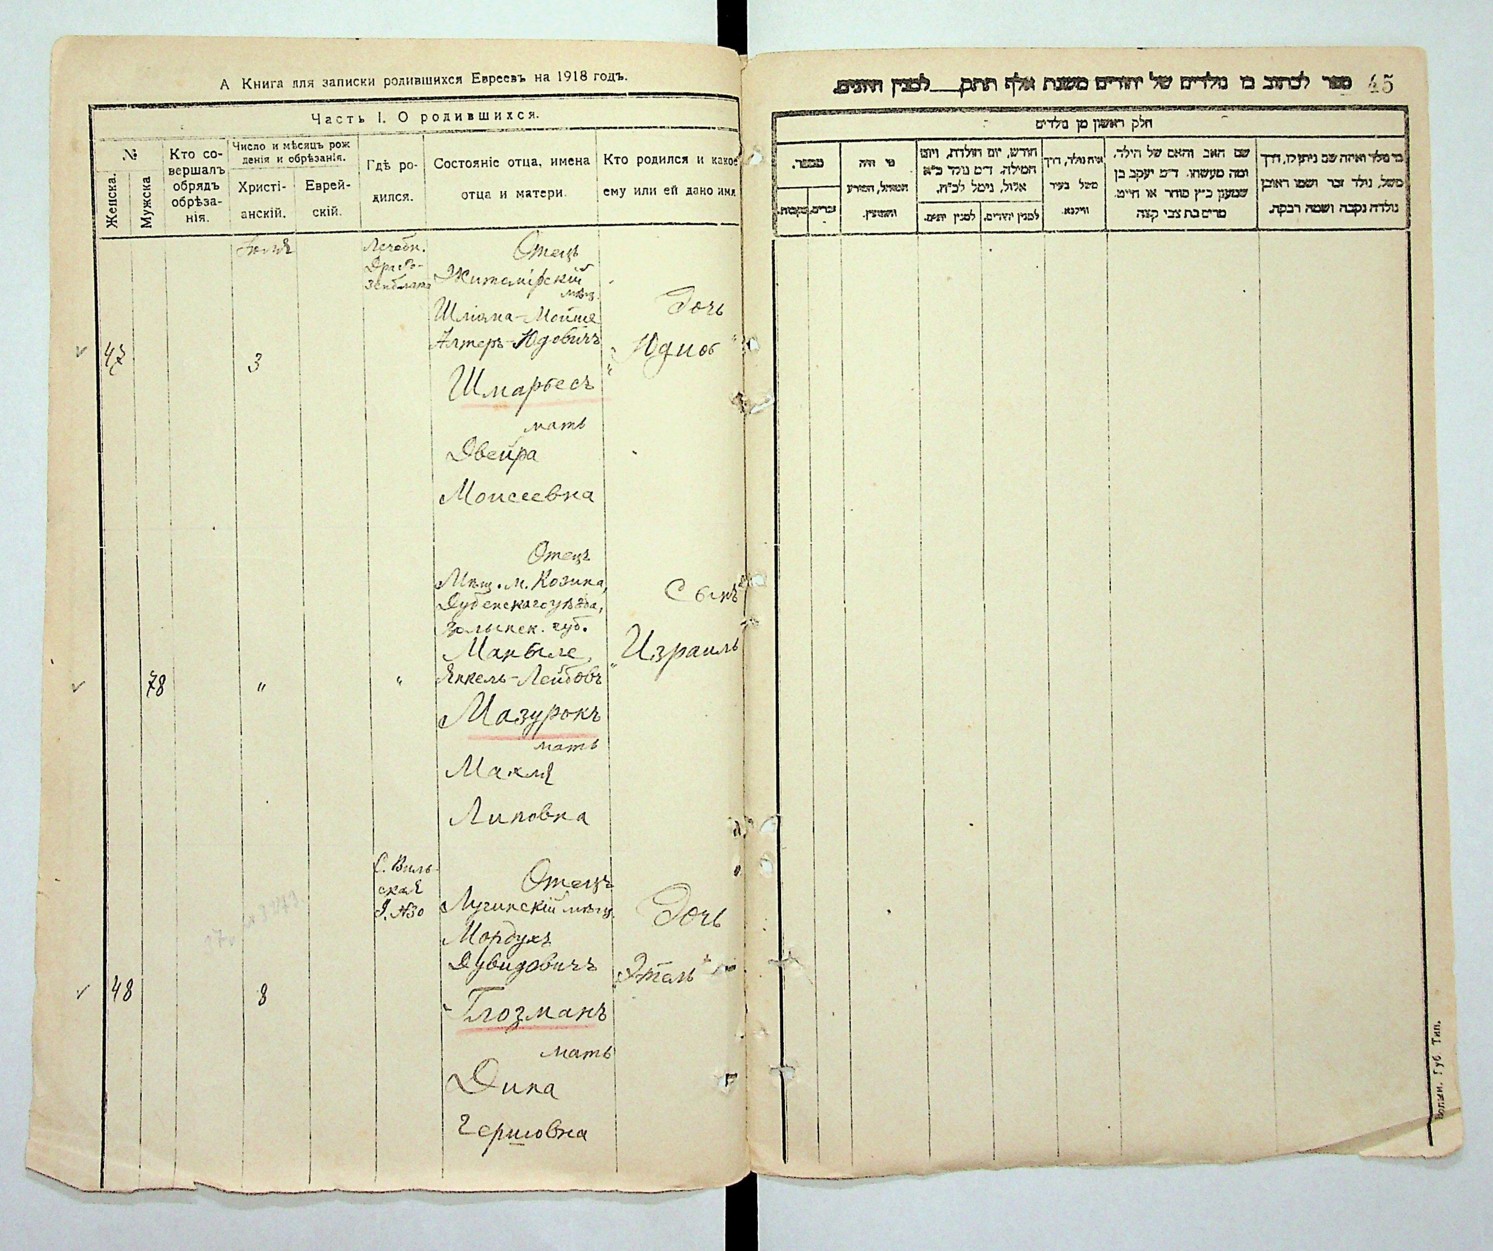 А Книга для записки родившихся Евреевъ на 1918 годъ.
Часть I. О родившихся.
№
Женска.
Мужска
Кто со-
вершалъ
обрядъ
обрѣза-
нія.
Число и мѣсяцъ рож
денія и обрѣзанія.
Христі-
анскій.
Еврей-
скій.
Гдѣ ро-
дился.
Состояніе отца, имена
отца и матери.
Кто родился и какое
ему или ей дано имя
47
Іюля
3
Лечебн.
Отецъ
Житомірскій
мѣщ.
Шліома-Мойше
Алтеръ-Юдовичъ
Шмарьесъ
мать
Двейра
Моисеевна
Дочь
"Юдисъ"
78
"
"
Отецъ
Мѣщ. м. Козина,
Дубенскаго уѣзда,
Волынск. губ.
Янкель-Лейбовъ
Мазурокъ
мать
Макля
Липовна
Сынъ
"Израиль"
48
8
С. Виль-
ская
д. №30
Отецъ
Лугинскій мѣщ.
Мордухъ
Дувидовичъ
Глозманъ
мать
Дина
Гершовна
Дочь
"Этель"
ספר לכתוב בו נולדים של יהודים משנת אלף תתק___ למנין היונים.
45
חלק ראשון מן נולדים
מספר.
נקבות.
זכרים.
מי היה
המוהל, הפורע
והמוצץ.
חודש, יום הולדת, ויום
המילה. ד״מ נולד כ״א
אלול, נימול לכ״ח.
למנין יונים.
למנין יהודים.
איה נולד, דרך
משל בעיר
ווילנא.
שם האב והאם של הילד.
ומה מעשהו. ד״מ יעקב בן
שמעון כ״ץ סוחר או חייט.
מרים בת צבי קצה
מי נולד ואיזה שם ניתן לו, דרך
משל, נולד זכר ושמו ראובן
נולדה נקבה ושמה רבקה.
Волын. Губ. Тип.